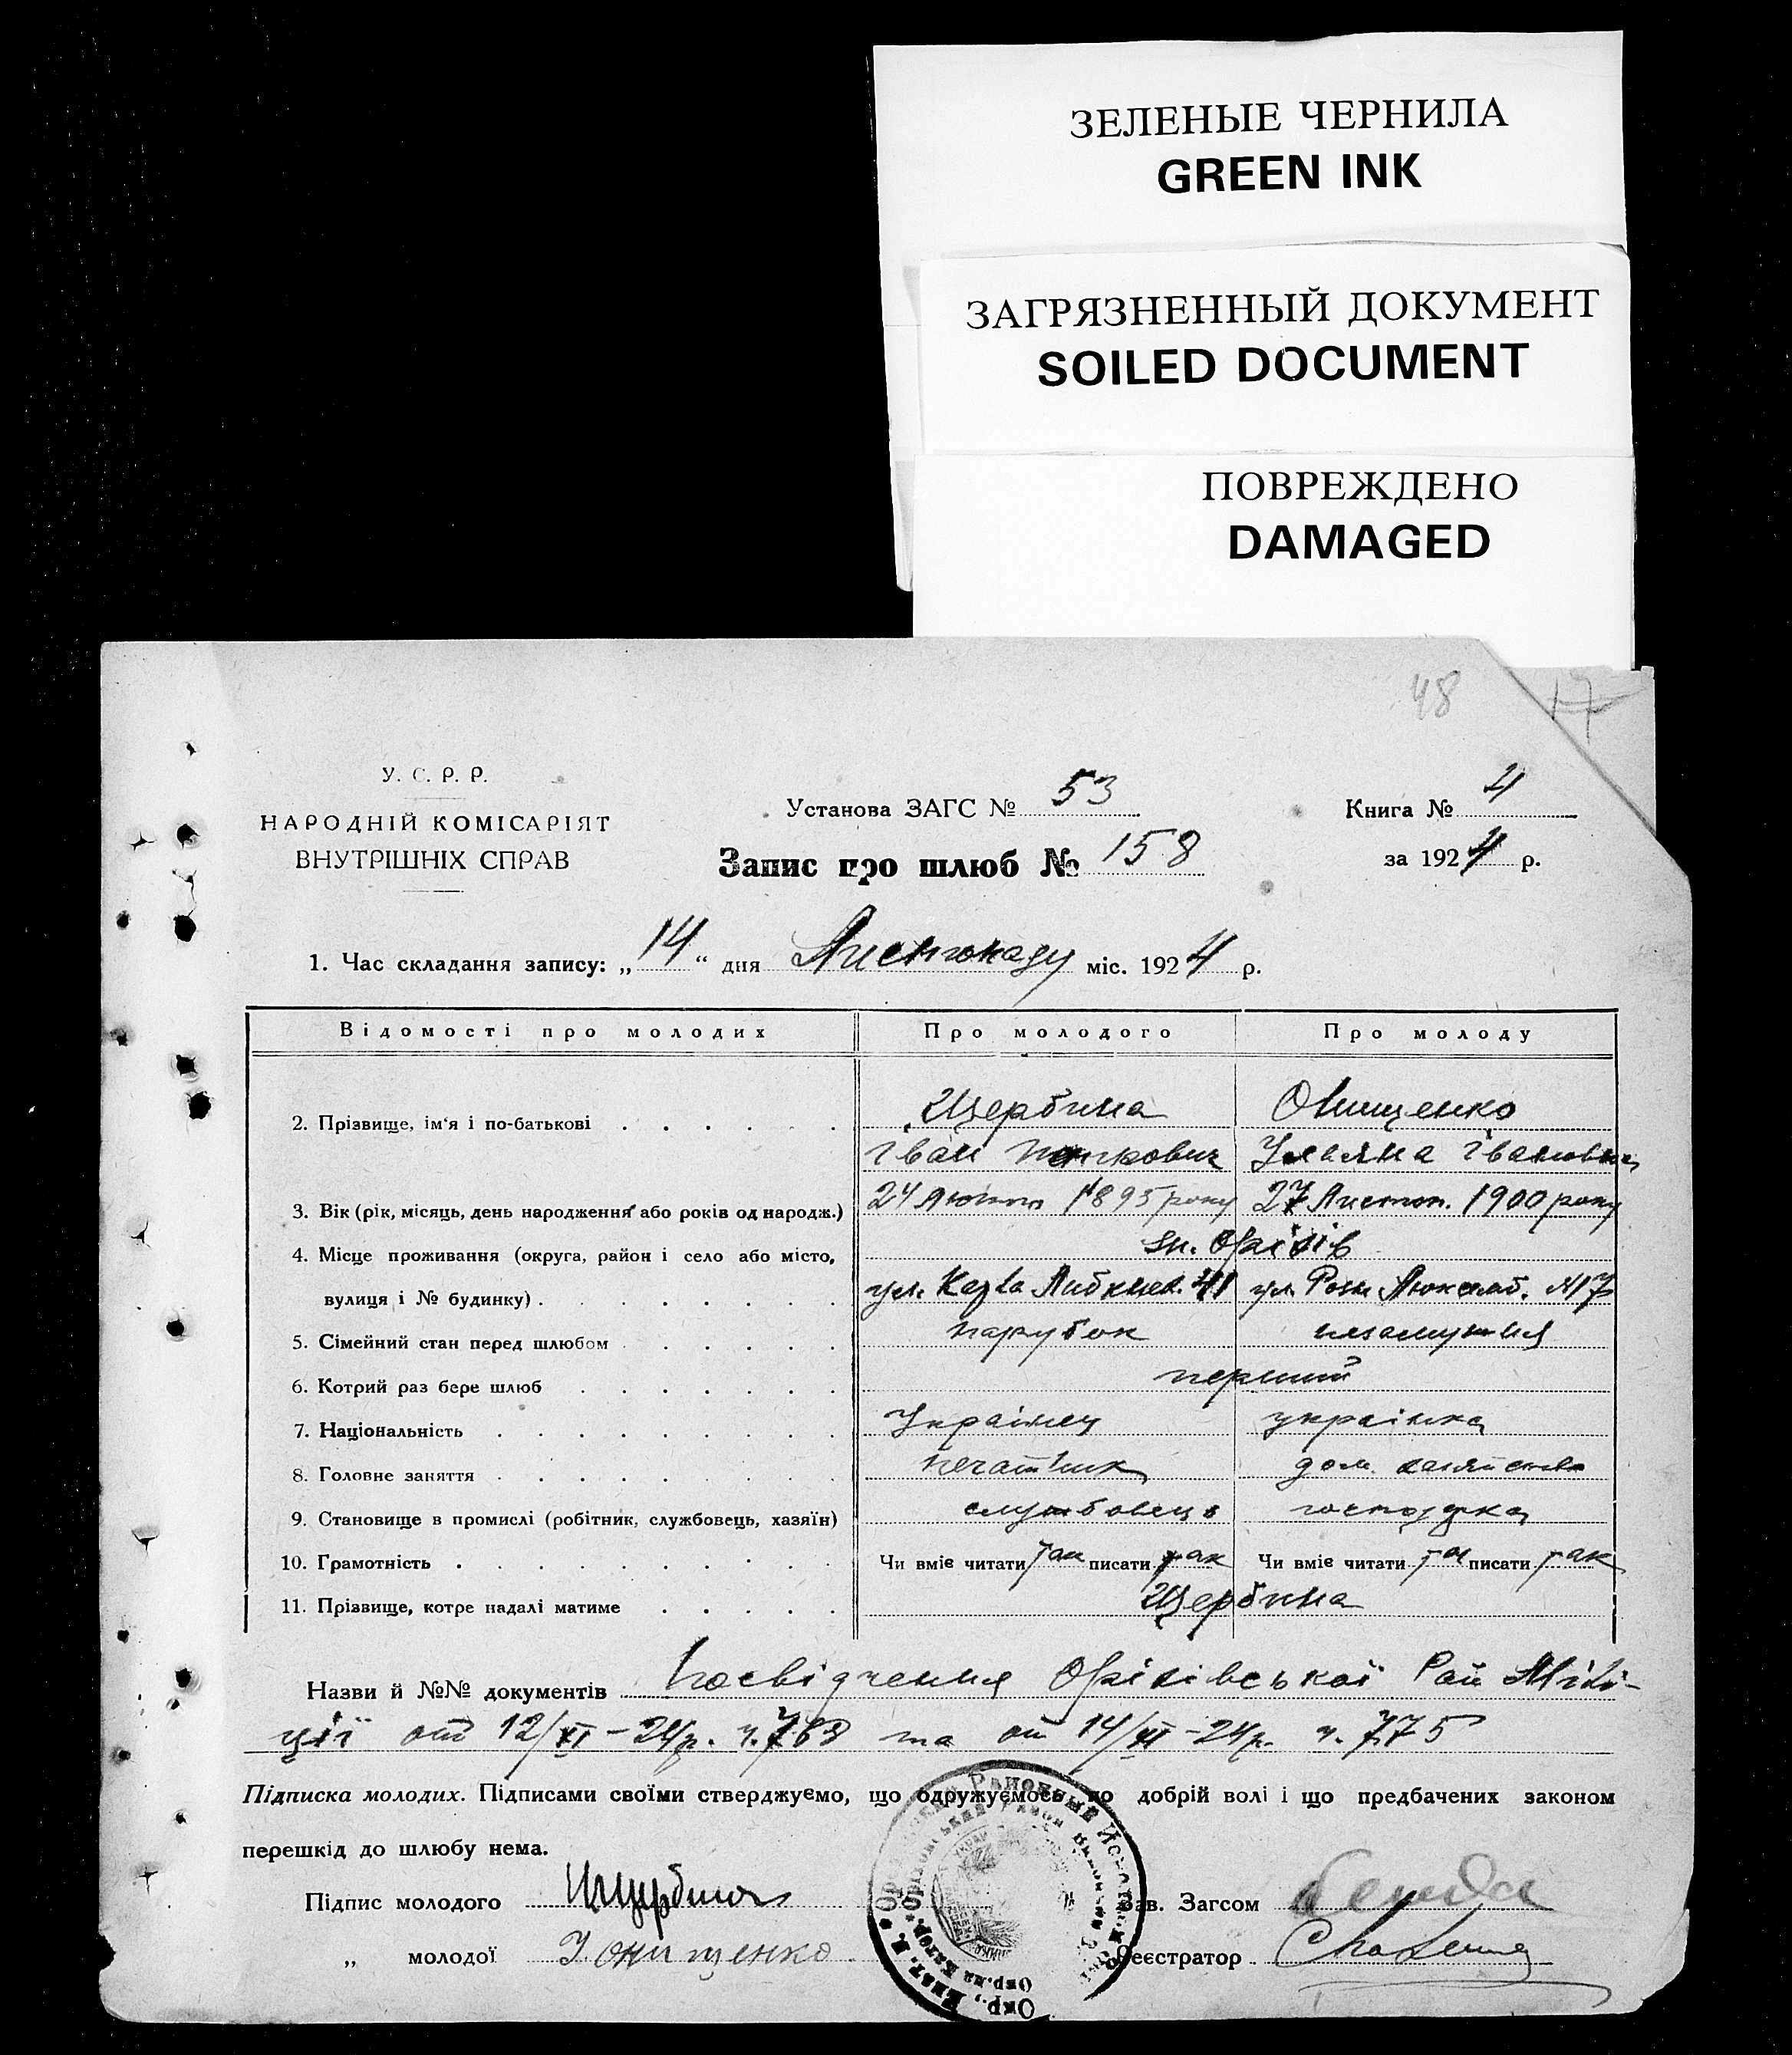 ЗЕЛЕНЫЕ ЧЕРНИЛА
GREEN INK
ЗАГРЯЗНЕННЫЙ ДОКУМЕНТ
SOILED DOCUMENT
ПОВРЕЖДЕНО
DAMAGED
48 17
У. С. Р. Р.
НАРОДНІЙ КОМІСАРІЯТ
ВНУТРІШНІХ СПРАВ
Установа ЗАГС № 53
Книга № 4
Запис про шлюб № 158
за 1924 р.
1. Час складання запису: „14“ дня Листопаду міс. 1924 р.
Відомості про молодих Про молодого Про молоду
2. Прізвище, ім'я і по-батькові Щербина Онищенко
Іван Уляна Івановна
3. Вік (рік, місяць, день народження або років од народж.) 24 Лютого 1895 року 27 Листоп. 1900 року
4. Місце проживання (округа, район і село або місто, м. Оріхів
вулиця і № будинку) ул. Карла Либкнех. 41 ул. Рози Люксемб. №17
5. Сімейний стан перед шлюбом парубок незамужня
6. Котрий раз бере шлюб перший
7. Національність Українец українка
8. Головне заняття печатник дом. хазяйство
9. Становище в промислі (робітник, службовець, хазяїн) службовець
10. Грамотність Чи вміє читати так писати так Чи вміє читати так писати так
11. Прізвище, котре надалі матиме Щербина
Назви й №№ документів Посвідчення Оріхівської Рай Мілі-
ції от 12/XI-24р. ч. 763 та от 14/XI-24р. ч. 775
Підписка молодих. Підписами своїми стверджуємо, що одружуємось по добрій волі і що предбачених законом
перешкід до шлюбу нема.
Підпис молодого Щербина Зав. Загсом
„ молодої У. Онищенко Реєстратор